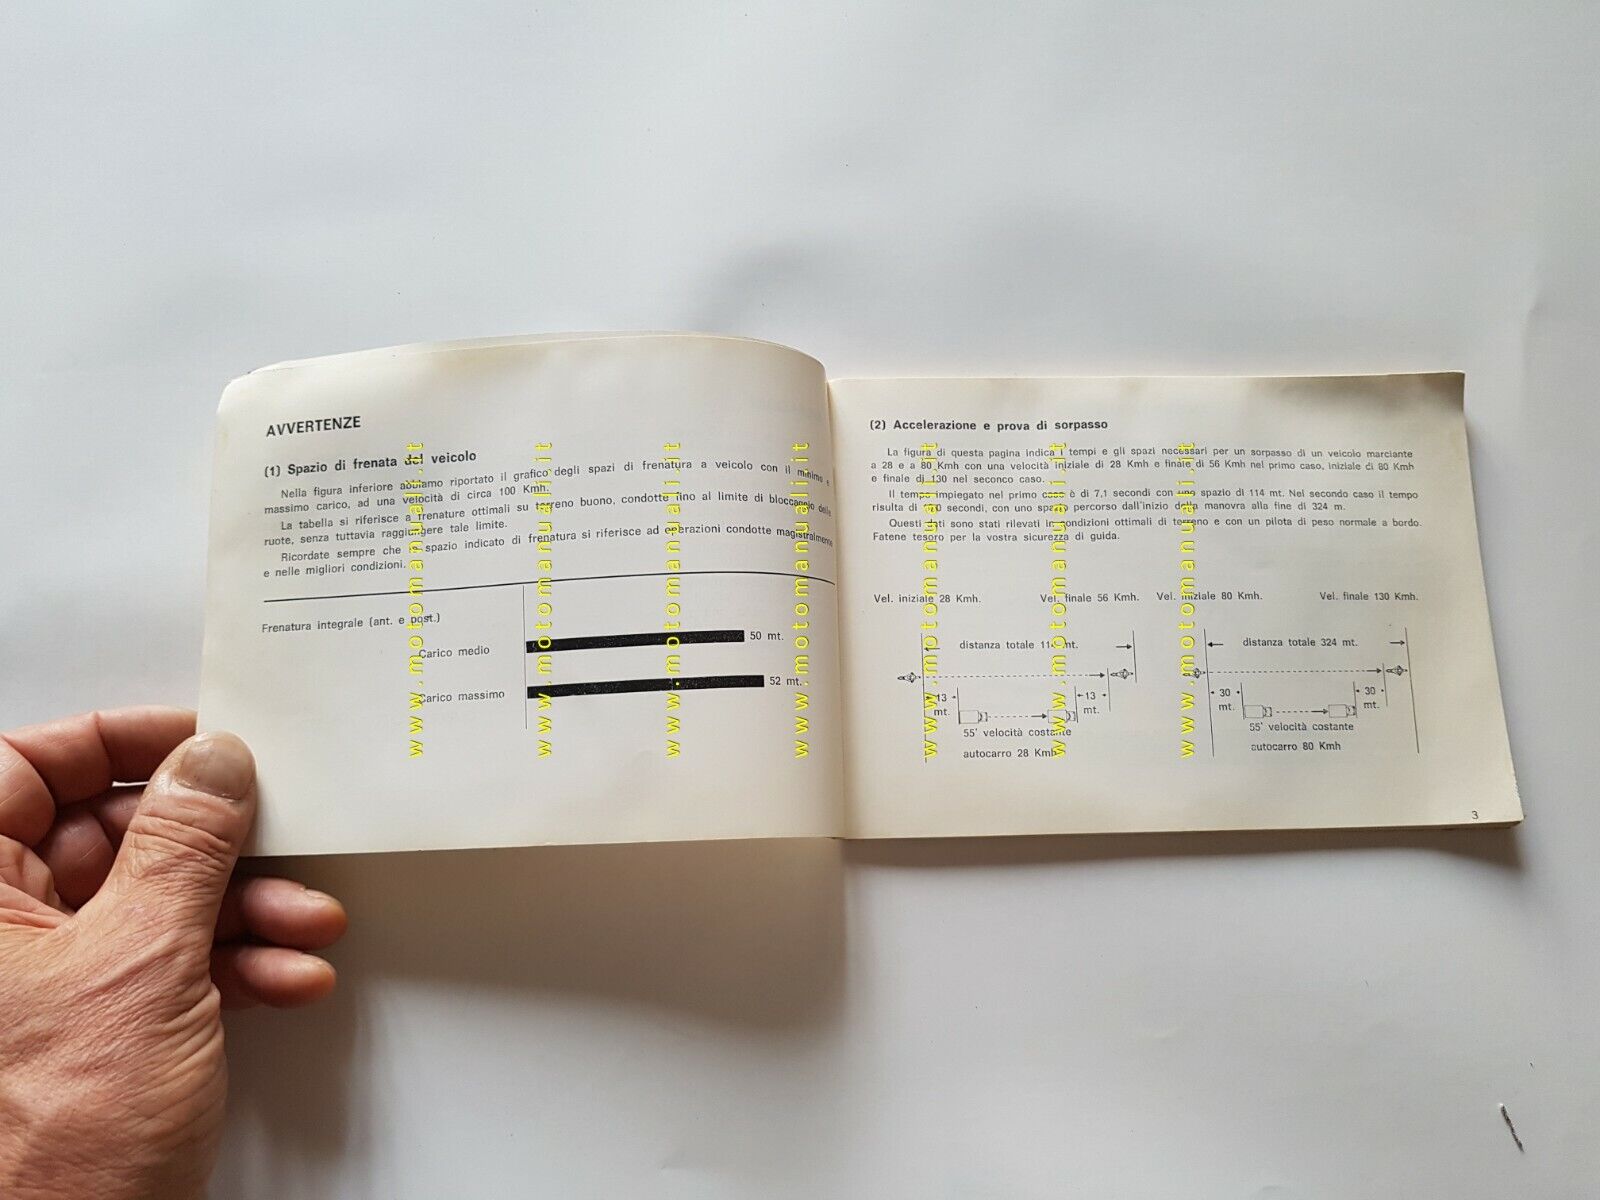 AVVERTENZE
(1) Spazio di frenata del veicolo
Nella figura inferiore abbiamo riportato il grafico degli spazi di frenatura a veicolo con il minimo e
massimo carico, ad una velocità di circa 100 Kmh.
La tabella si riferisce a frenature ottimali su terreno buono, condotte fino al limite di bloccaggio delle
ruote, senza tuttavia raggiungere tale limite.
Ricordate sempre che lo spazio indicato di frenatura si riferisce ad operazioni condotte magistralmente
e nelle migliori condizioni.
Frenatura integrale (ant. e post.)
Carico medio
50 mt.
Carico massimo
52 mt.
(2) Accelerazione e prova di sorpasso
La figura di questa pagina indica i tempi e gli spazi necessari per un sorpasso di un veicolo marciante
a 28 e a 80 Kmh con una velocità iniziale di 28 Kmh e finale di 56 Kmh nel primo caso, iniziale di 80 Kmh
e finale di 130 nel seconco caso.
Il tempo impiegato nel primo caso è di 7,1 secondi con uno spazio di 114 mt. Nel secondo caso il tempo
risulta di secondi, con uno spazio percorso dall'inizio della manovra alla fine di 324 m.
Questi dati sono stati rilevati in condizioni ottimali di terreno e con un pilota di peso normale a bordo.
Fatene tesoro per la vostra sicurezza di guida.
Vel. iniziale 28 Kmh.
Vel. finale 56 Kmh.
Vel. iniziale 80 Kmh.
Vel. finale 130 Kmh.
distanza totale 114 mt.
distanza totale 324 mt.
13
mt.
13
mt.
30
mt.
30
mt.
55' velocità costante
autocarro 28 Kmh
55' velocità costante
autocarro 80 Kmh
3
www.motomanuali.it
www.motomanuali.it
www.motomanuali.it
www.motomanuali.it
www.motomanuali.it
www.motomanuali.it
www.motomanuali.it